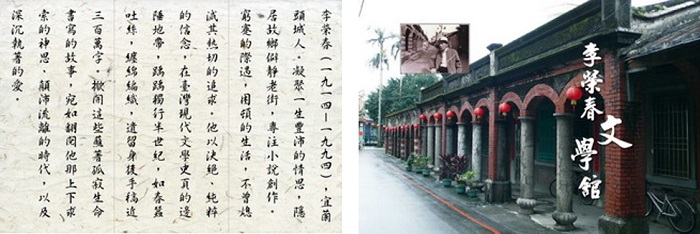 李榮春（一九一四—一九九四），宜蘭
頭城人。凝聚一生豐沛的情思，隱
居故鄉僻靜老街，專注小說創作。
窮蹇的際遇，困頓的生活，不曾熄
滅其熱切的追求。他以決絕、純粹
的信念，在臺灣現代文學史頁的邊
陲地帶，踽踽獨行半世紀，如春蠶
吐絲，纏綿編織，遺留身後手稿近
三百萬字。掀閱這些蘸著孤寂生命
書寫的故事，宛如翻閱他那上下求
索的神思、顛沛流離的時代，以及
深沉執著的愛。
李榮春
文學館